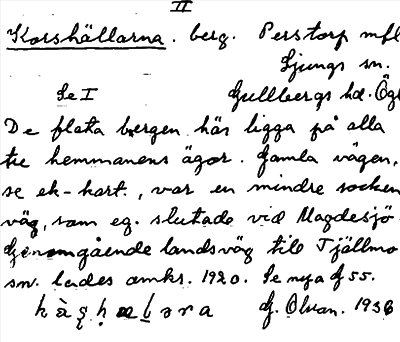 II
Korshällarna. berg. Perstorp mfl
Ljungs sn.
Se I Gullbergs hd. Ögl
De flata bergen här ligga på alla
tre hemmanens ägor. Gamla vägen,
se ek-kart., var en mindre socken
väg, som eg. slutade vid Magdesjö.
Genomgående landsväg till Tjällmo
sn. lades omkr. 1920. Se nya G 55.
G. Olvan. 1936